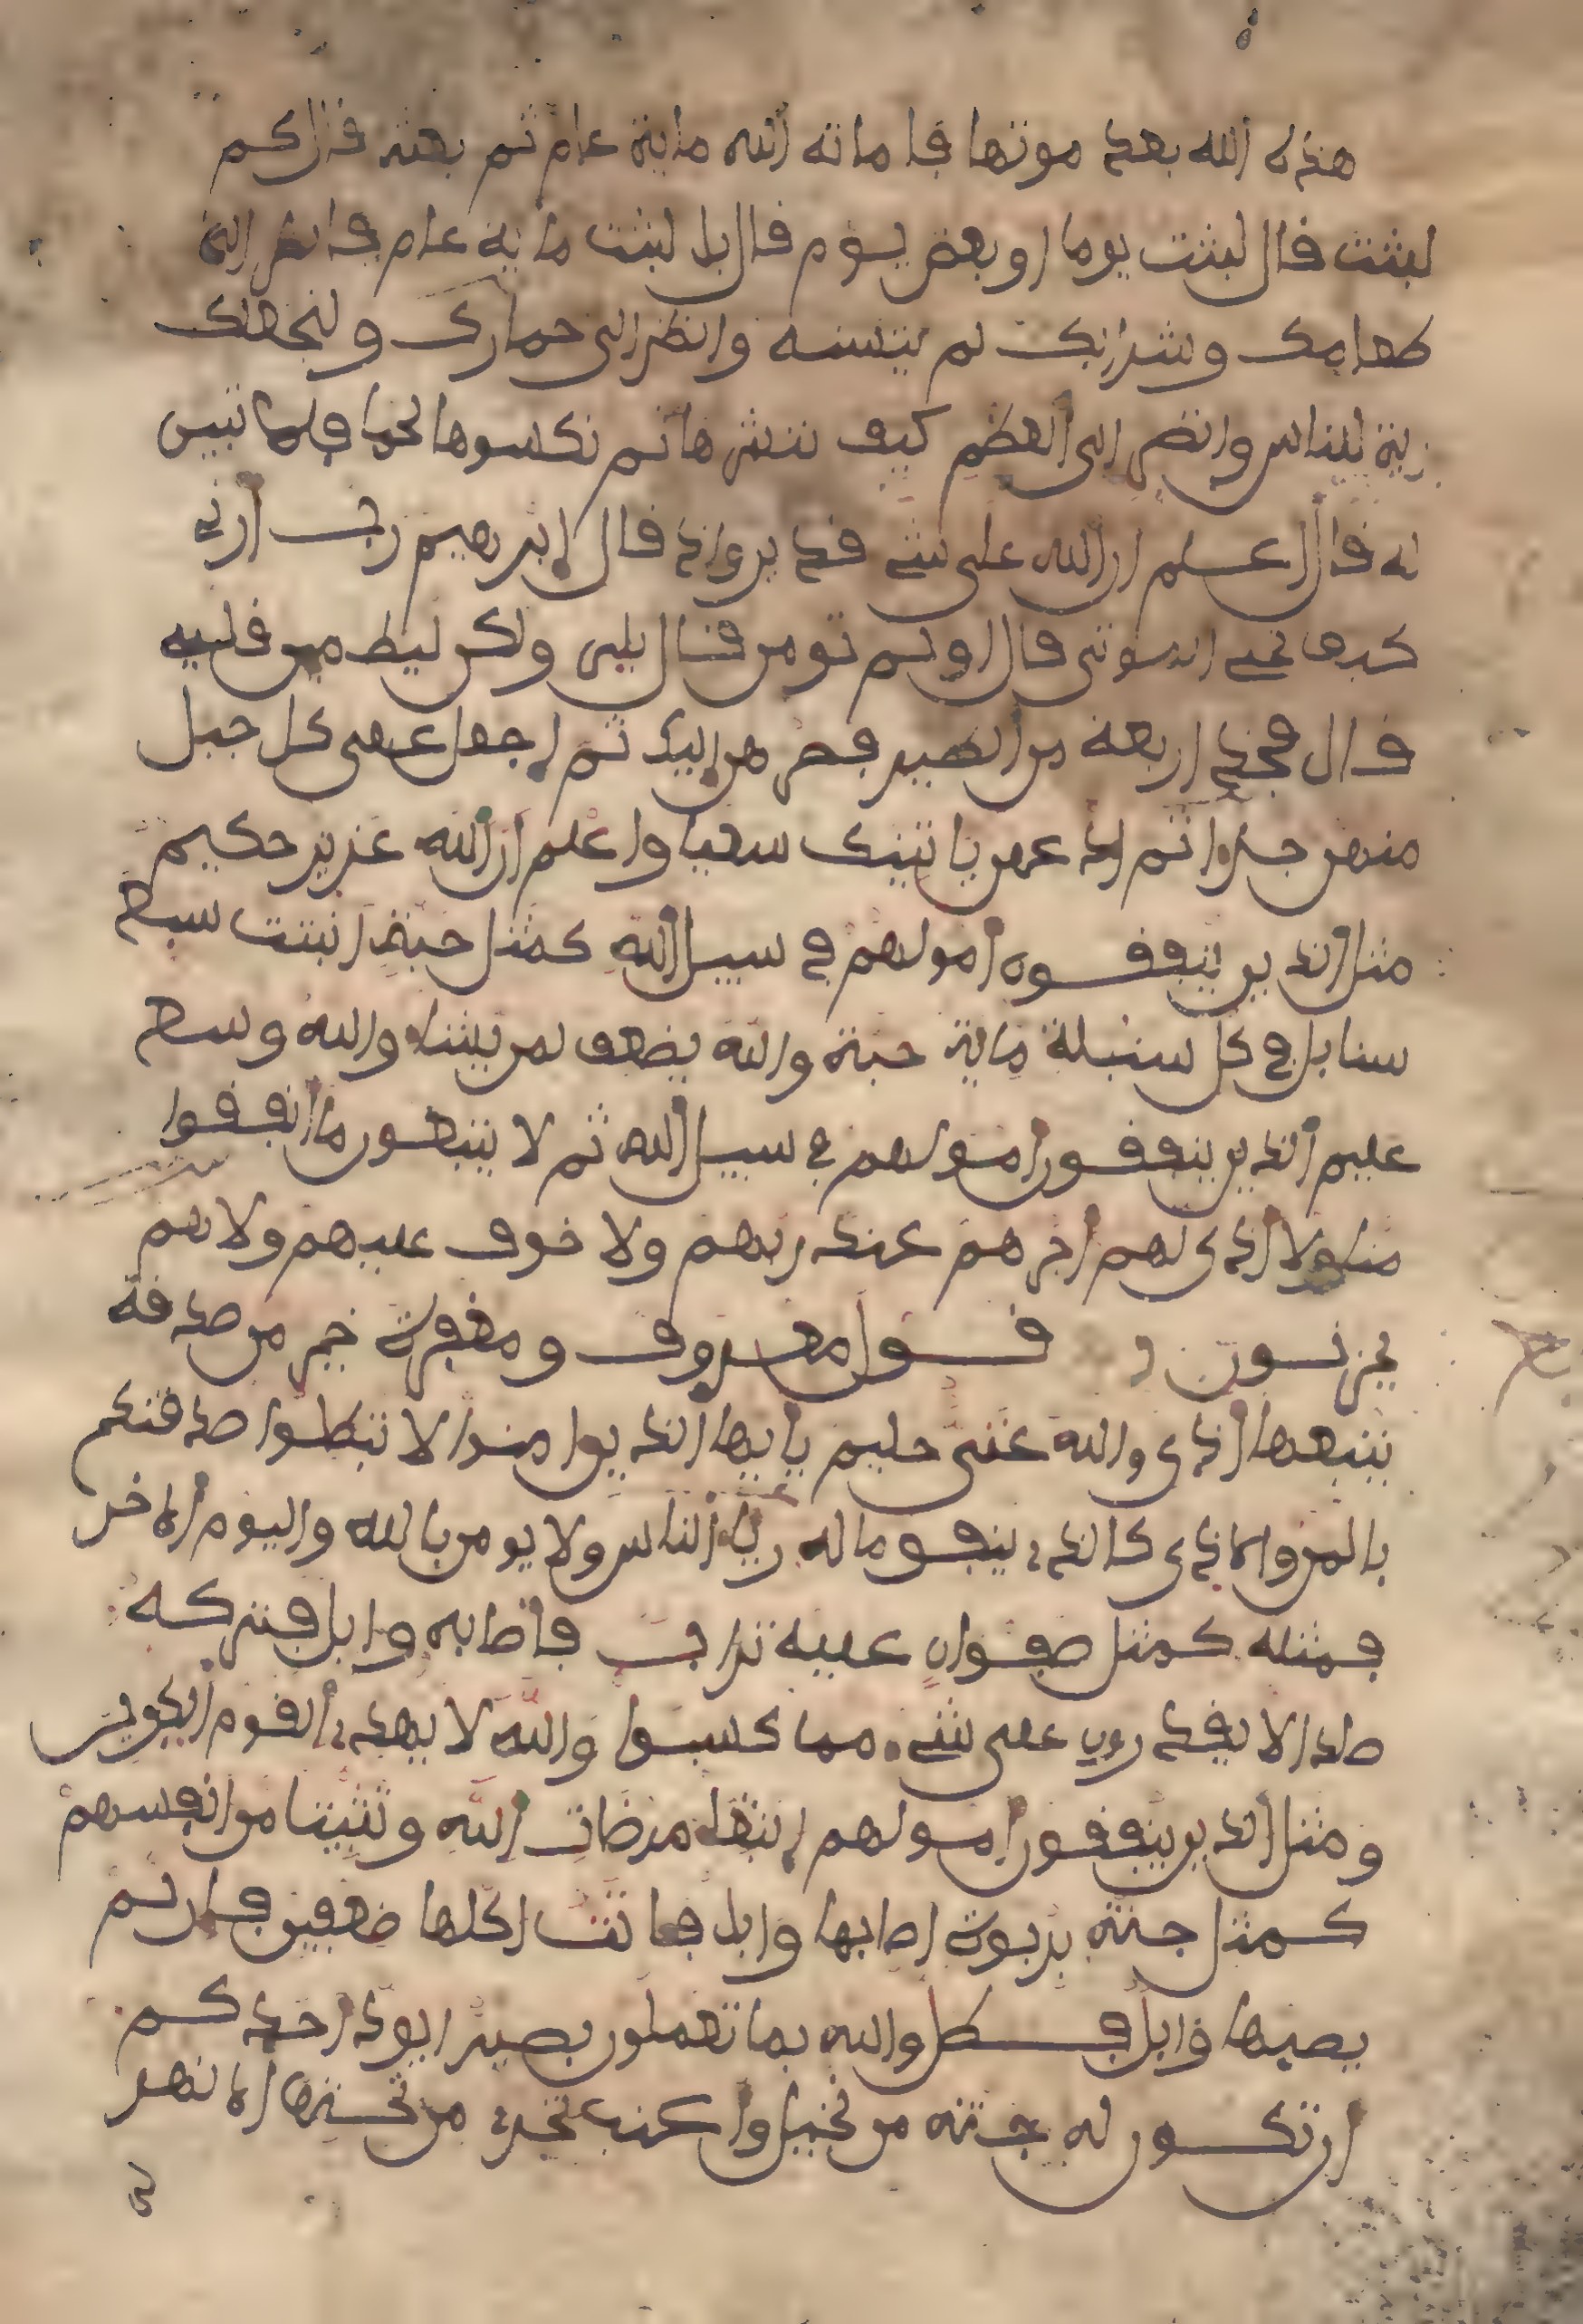 هذه الله بعد موتها فاماته الله ماية عام ثم بعثه قال كم
لبثت قال لبثت يوما او بعض يوم قال بل لبثت ماية عام فانظر الى
طعامك وشرابك لم يتسنه وانظر الى حمارك ولنجعلك
اية للناس وانظر الى العظم كيف ننشرها ثم نكسوها لحما فلما تبين
له قال اعلم ان الله على شيء قدير واذ قال ابرهيم رب ارني
كيف تحي الموتى قال اولم تومن قال بلى ولكن ليطمين قلبي
قال فخذ اربعة من الطير فصرهن اليك ثم اجعل على كل جبل
منهن جزءا ثم ادعهن ياتينك سعيا واعلم ان الله عزيز حكيم
مثل الذين ينفقون امولهم في سبيل الله كمثل حبة انبتت سبع
سنابل في كل سنبلة ماية حبة والله يضعف لمن يشاء والله وسع
عليم الذين ينفقون امولهم في سبيل الله ثم لا يتبعون ما انفقوا
منا ولا اذى لهم اجرهم عند ربهم ولا خوف عليهم ولا هم
يحزنون قول معروف ومغفرة خير من صدقة
يتبعها اذى والله غني حليم يايها الذين امنوا لا تبطلوا صدقتكم
بالمن والاذى كالذي ينفق ماله رياء الناس ولا يومن بالله واليوم الاخر
فمثله كمثل صفوان عليه تراب فاصابه وابل فتركه
صلدا لا يقدرون على شيء مما كسبوا والله لا يهدي القوم الكفرين
ومثل الذين ينفقون امولهم ابتغاء مرضات الله وتثبيتا من انفسهم
كمثل جنة بربوة اصابها وابل فاتت اكلها ضعفين فان لم
يصبها وابل فطل والله بما تعملون بصير ايود احدكم
ان تكون له جنة من نخيل واعنب تجري من تحتها الانهر